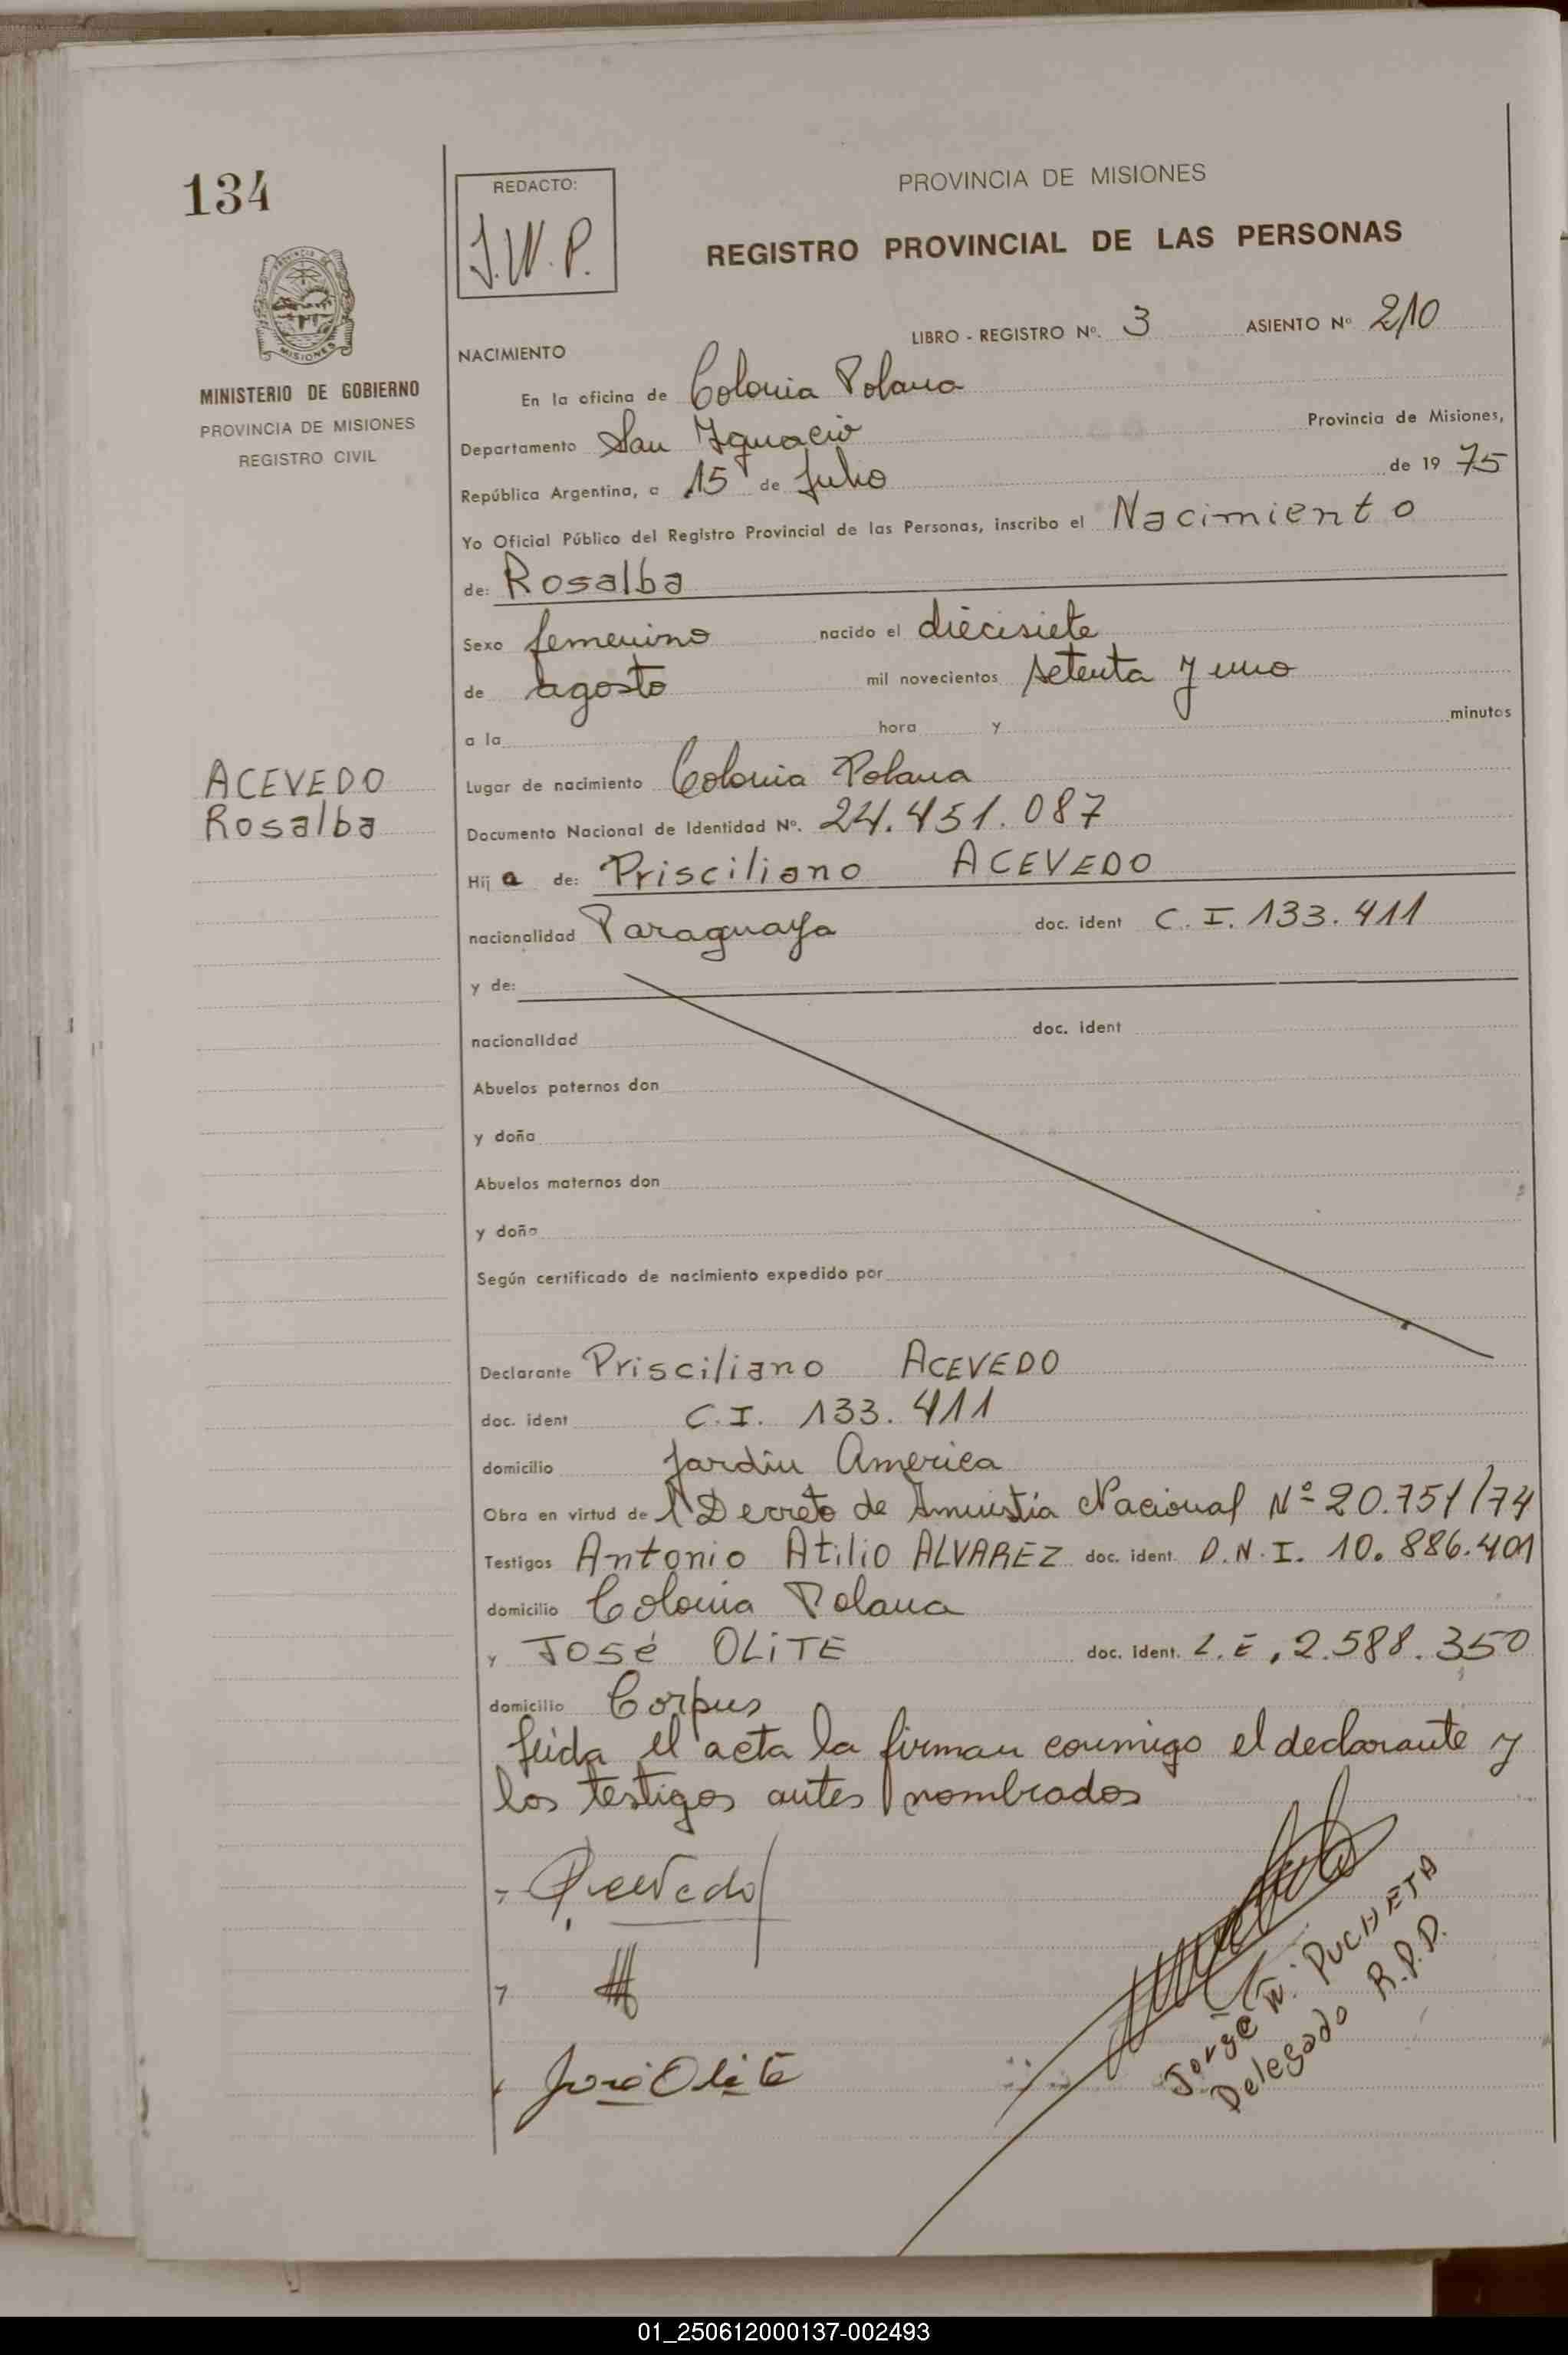 134
REDACTO:
J.W.P.
PROVINCIA DE MISIONES
REGISTRO PROVINCIAL DE LAS PERSONAS
LIBRO - REGISTRO Nº. 3 ASIENTO Nº 210
PROVINCIA DE MISIONES
MINISTERIO DE GOBIERNO
PROVINCIA DE MISIONES
REGISTRO CIVIL
NACIMIENTO
En la oficina de Colonia Polana
Departamento San Ignacio Provincia de Misiones,
República Argentina, a 15 de Julio de 19 75
Yo Oficial Público del Registro Provincial de las Personas, inscribo el Nacimiento
de: Rosalba
Sexo femenino nacido el diecisiete
de agosto mil novecientos setenta y uno
a la hora y minutos
ACEVEDO
Rosalba
Lugar de nacimiento Colonia Polana
Documento Nacional de Identidad Nº. 24.451.087
Hij a de: Prisciliano ACEVEDO
nacionalidad Paraguaya doc. ident C.I. 133.411
y de:
nacionalidad doc. ident
Abuelos paternos don
y doña
Abuelos maternos don
y doña
Según certificado de nacimiento expedido por
Declarante Prisciliano ACEVEDO
doc. ident C.I. 133.411
domicilio Jardin America
Obra en virtud de l Decreto de Amnistía Nacional Nº 20.751/74
Testigos Antonio Atilio ALVAREZ doc. ident. D.N.I. 10.886.401
domicilio Colonia Polana
y José OLiTE doc. ident. L.E. 2.588.350
domicilio Corpus
Leida el acta la firman conmigo el declarante y
los testigos antes nombrados
José Olite
Jorge W. PUCHETA
Delegado R.P.P.
01_250612000137-002493